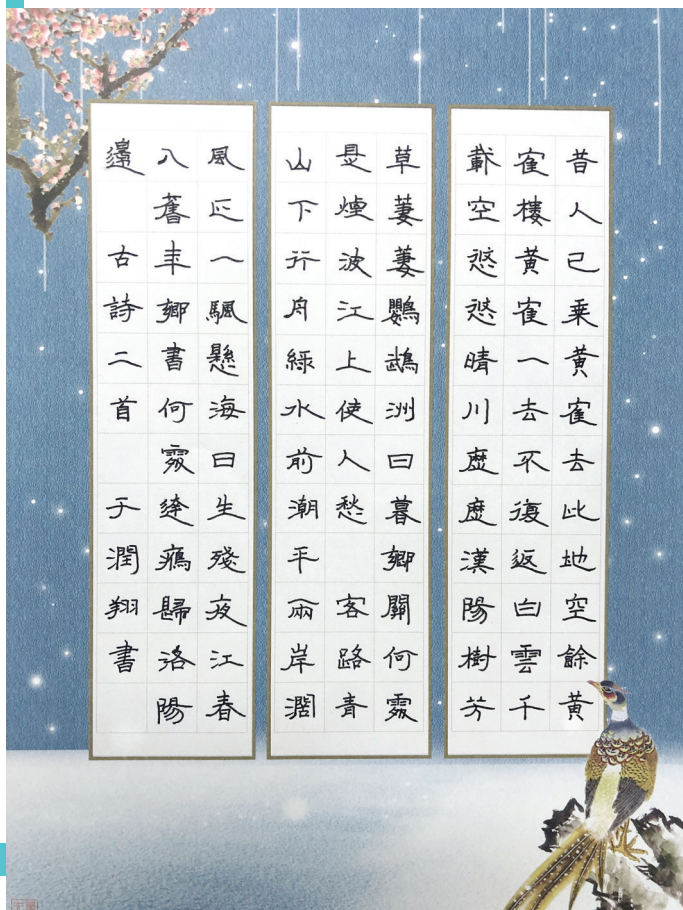 昔人已乘黃寉去此地空餘黃
寉樓黃寉一去不復返白雲千
載空悠悠晴川歷歷漢陽樹芳
草萋萋鸚鵡洲日暮鄉關何處
是煙波江上使人愁 客路青
山下行舟綠水前潮平兩岸濶
風正一颿懸海日生殘夜江春
入舊年鄉書何處達鴈歸洛陽
邊 古詩二首 于潤翔書